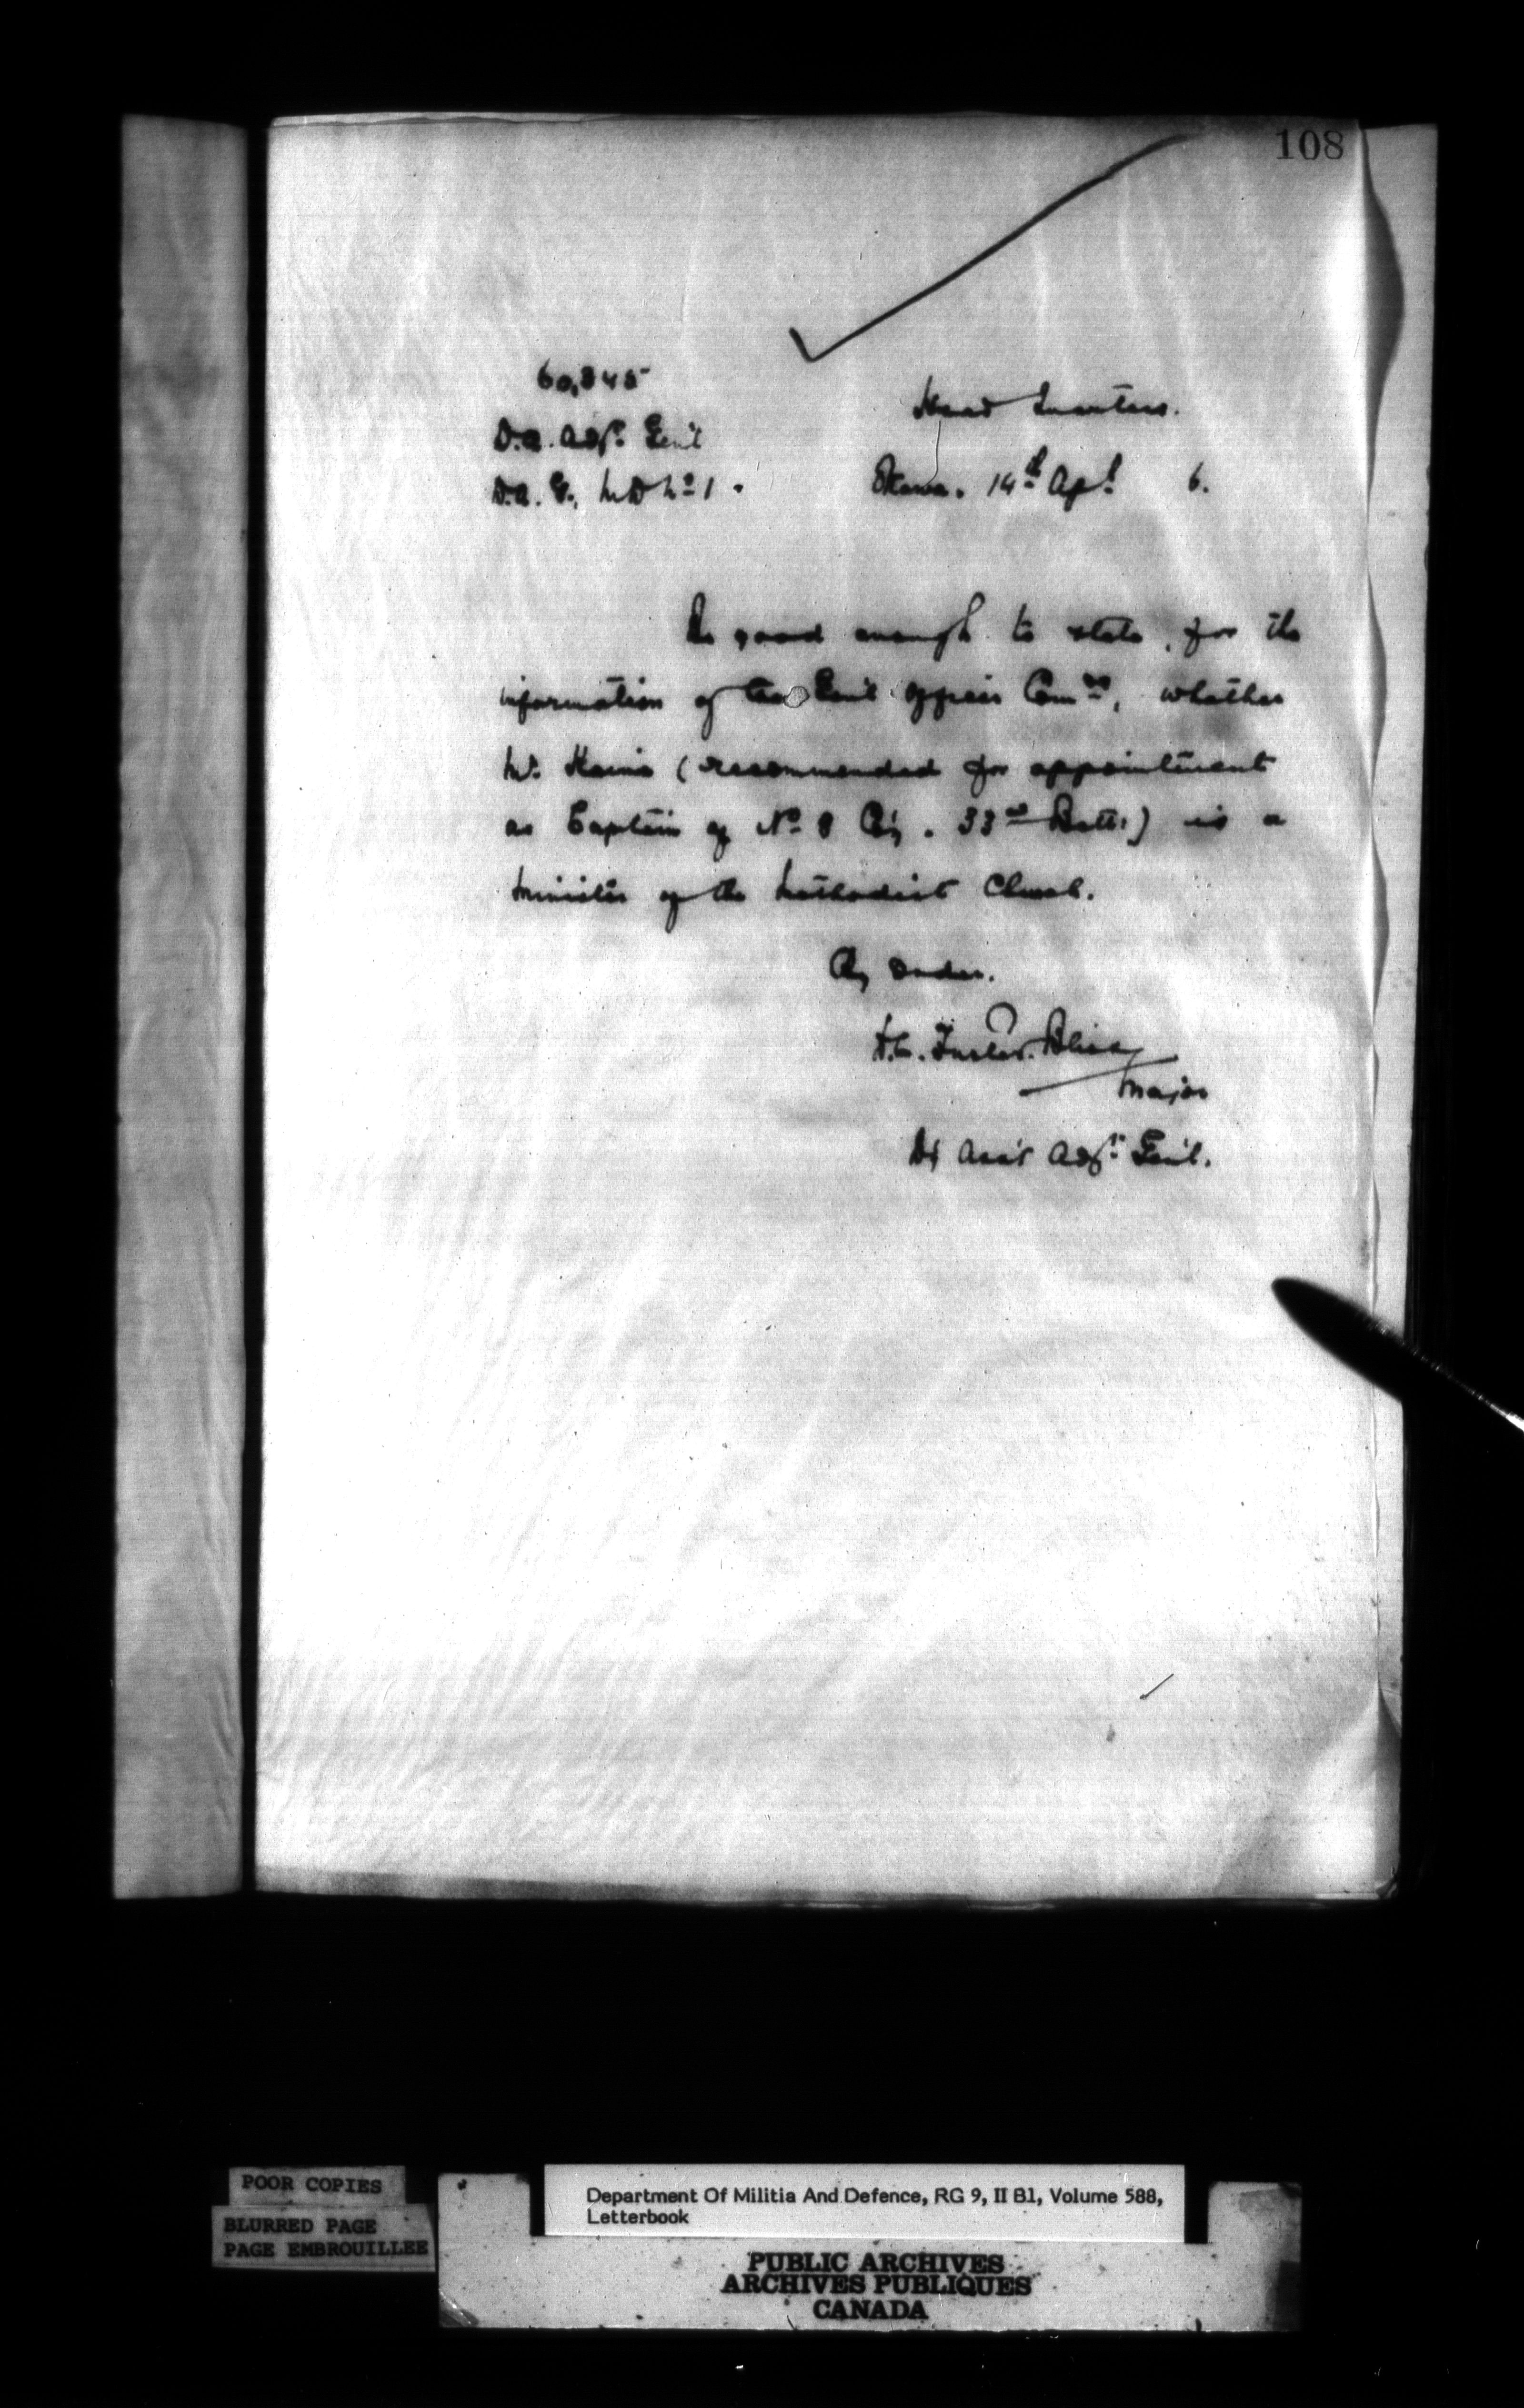 108
60,845
D.A. Adjt. Gen'l
D.A.G., M D No 1.
Head Quarters.
Ottawa. 14th Apl 6.
Be good enough to state, for the
information of the Gen'l Officer Comdg, whether
Mr. (recommended for appointment
as Captain of No 8 Coy. 33rd Batt:) is a
Minister of the Methodist Church.
By order.
Major
Dy Ass't Adjt Gen'l.
POOR COPIES
BLURRED PAGE
PAGE EMBROUILLEE
Department Of Militia And Defence, RG 9, II B1, Volume 588,
Letterbook
PUBLIC ARCHIVES
ARCHIVES PUBLIQUES
CANADA